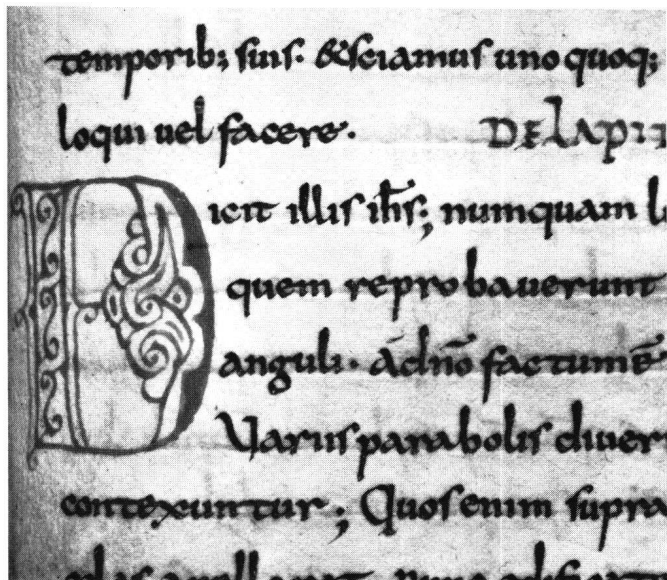 temporib; suis. &sciamus uno quoq;
loqui uel facere. DE LAPI
Dicit illis ihs; numquam l
quem reprobauerunt
anguli. Adno factum ē
Uariis parabolis diuer
contexuntur; Quos enim supra